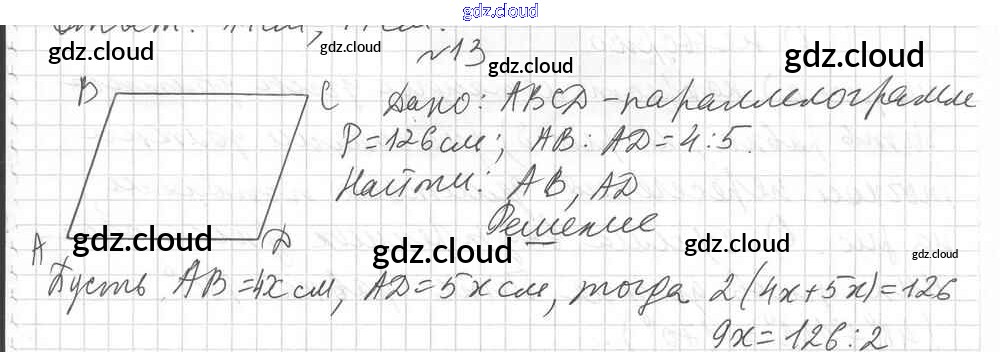 gdz.cloud
Ответ:
gdz.cloud
№13
gdz.cloud
gdz.cloud
B C Дано: ABCD - параллелограмм
gdz.cloud
P = 126 см; AB : AD = 4 : 5.
gdz.cloud
Найти: AB, AD
Решение
A D
gdz.cloud
gdz.cloud
gdz.cloud
gdz.cloud
Пусть AB = 4x см, AD = 5x см, тогда 2(4x + 5x) = 126
9x = 126 : 2
gdz.cloud
gdz.cloud
gdz.cloud